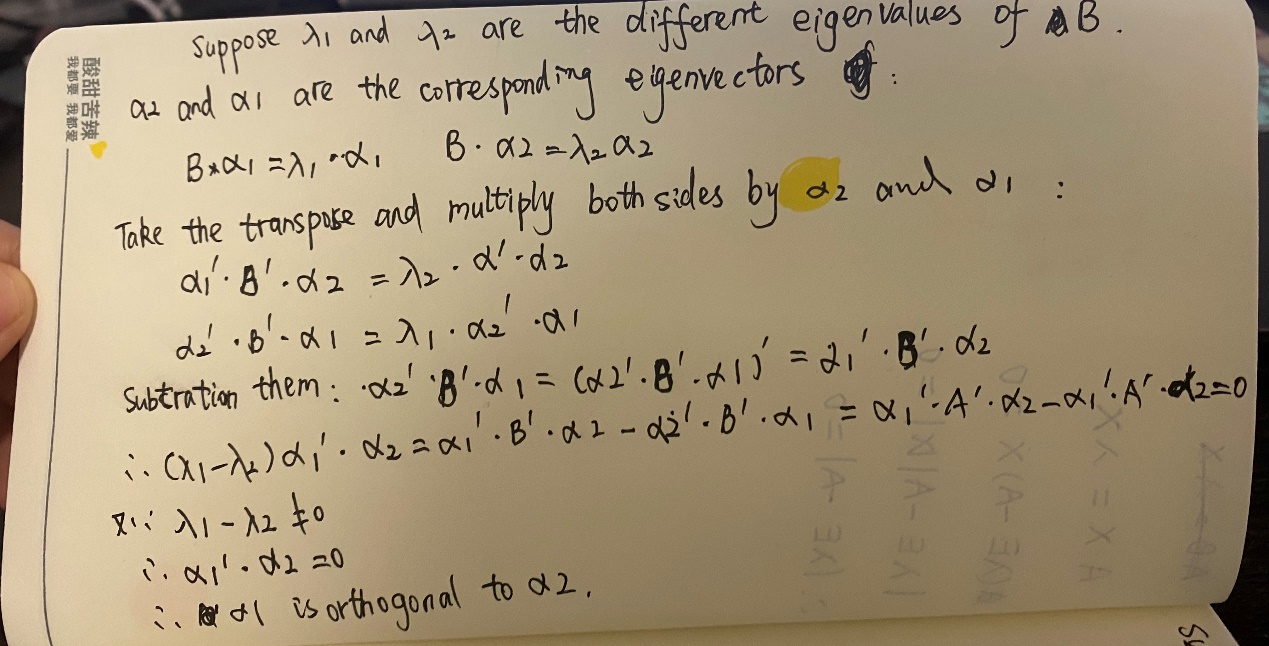 酸甜苦辣
我都要 我都爱
Suppose λ1 and λ2 are the different eigenvalues of B.
α2 and α1 are the corresponding eigenvectors :
B*α1 = λ1 · α1    B · α2 = λ2 α2
Take the transpose and multiply both sides by α2 and α1 :
α1' · B' · α2 = λ2 · α' · α2
α2' · B' · α1 = λ1 · α2' · α1
Subtration them: · α2' · B' · α1 = (α2' · B' · α1)' = α1' · B' · α2
∴ (λ1 - λ2) α1' · α2 = α1' · B' · α2 - α2' · B' · α1 = α1' · A' · α2 - α1' · A' · α2 = 0
∵ λ1 - λ2 ≠ 0
∴ α1' · α2 = 0
∴ α1 is orthogonal to α2.